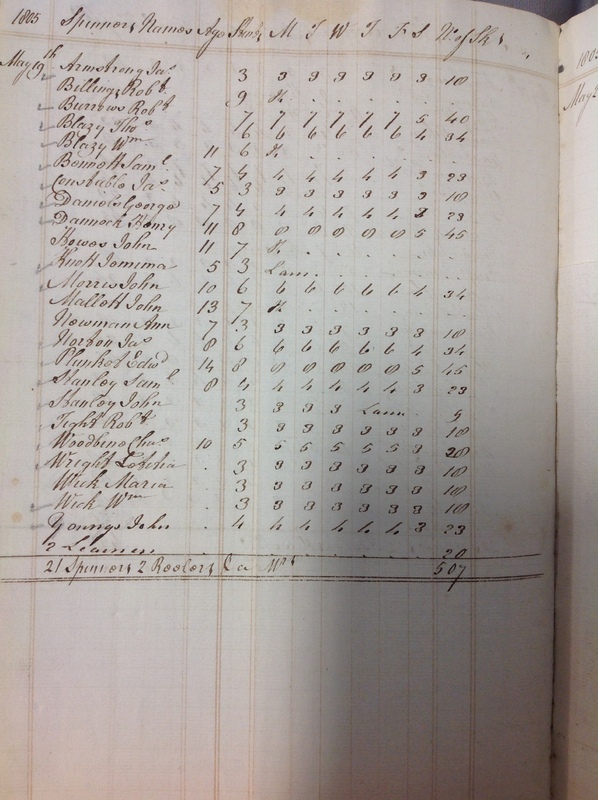 1805 Spinners Names Age Stint M T W T F S No of Sk
May 19th Armstrong Jas 3 3 3 3 3 3 3 18
Billings Robt 9 K . . . . . .
Burrows Robt 7 7 7 7 7 7 5 40
Blazy Thos 6 6 6 6 6 6 4 34
Blazy Wm 11 6 K . . . . . .
Bennett Saml 7 4 4 4 4 4 4 3 23
Constable Jas 5 3 3 3 3 3 3 3 18
Daniels George 7 4 4 4 4 4 4 3 23
Dannock Henry 11 8 8 8 8 8 8 5 45
Howes John 11 7 K . . . . . .
Knott Jemima 5 3 Lam . . . . .
Morris John 10 6 6 6 6 6 6 4 34
Mallott John 13 7 K . . . . . .
Newman Ann 7 3 3 3 3 3 3 3 18
Norton Jas 8 6 6 6 6 6 6 4 34
Plunket Edwd 14 8 8 8 8 8 8 5 45
Stanley Saml 8 4 4 4 4 4 4 3 23
Stanley John 3 3 3 3 Lam . 9
Tight Robt 3 3 3 3 3 3 3 18
Woodbine Chas 10 5 5 5 5 5 5 3 28
Wright Letitia . 3 3 3 3 3 3 3 18
Wick Maria 3 3 3 3 3 3 3 18
Wick Wm . 3 3 3 3 3 3 3 18
Youngs John . 4 4 4 4 4 4 3 23
2 Learners . . . . . . . . 20
21 Spinners 2 Reelers 507
1805
May 2